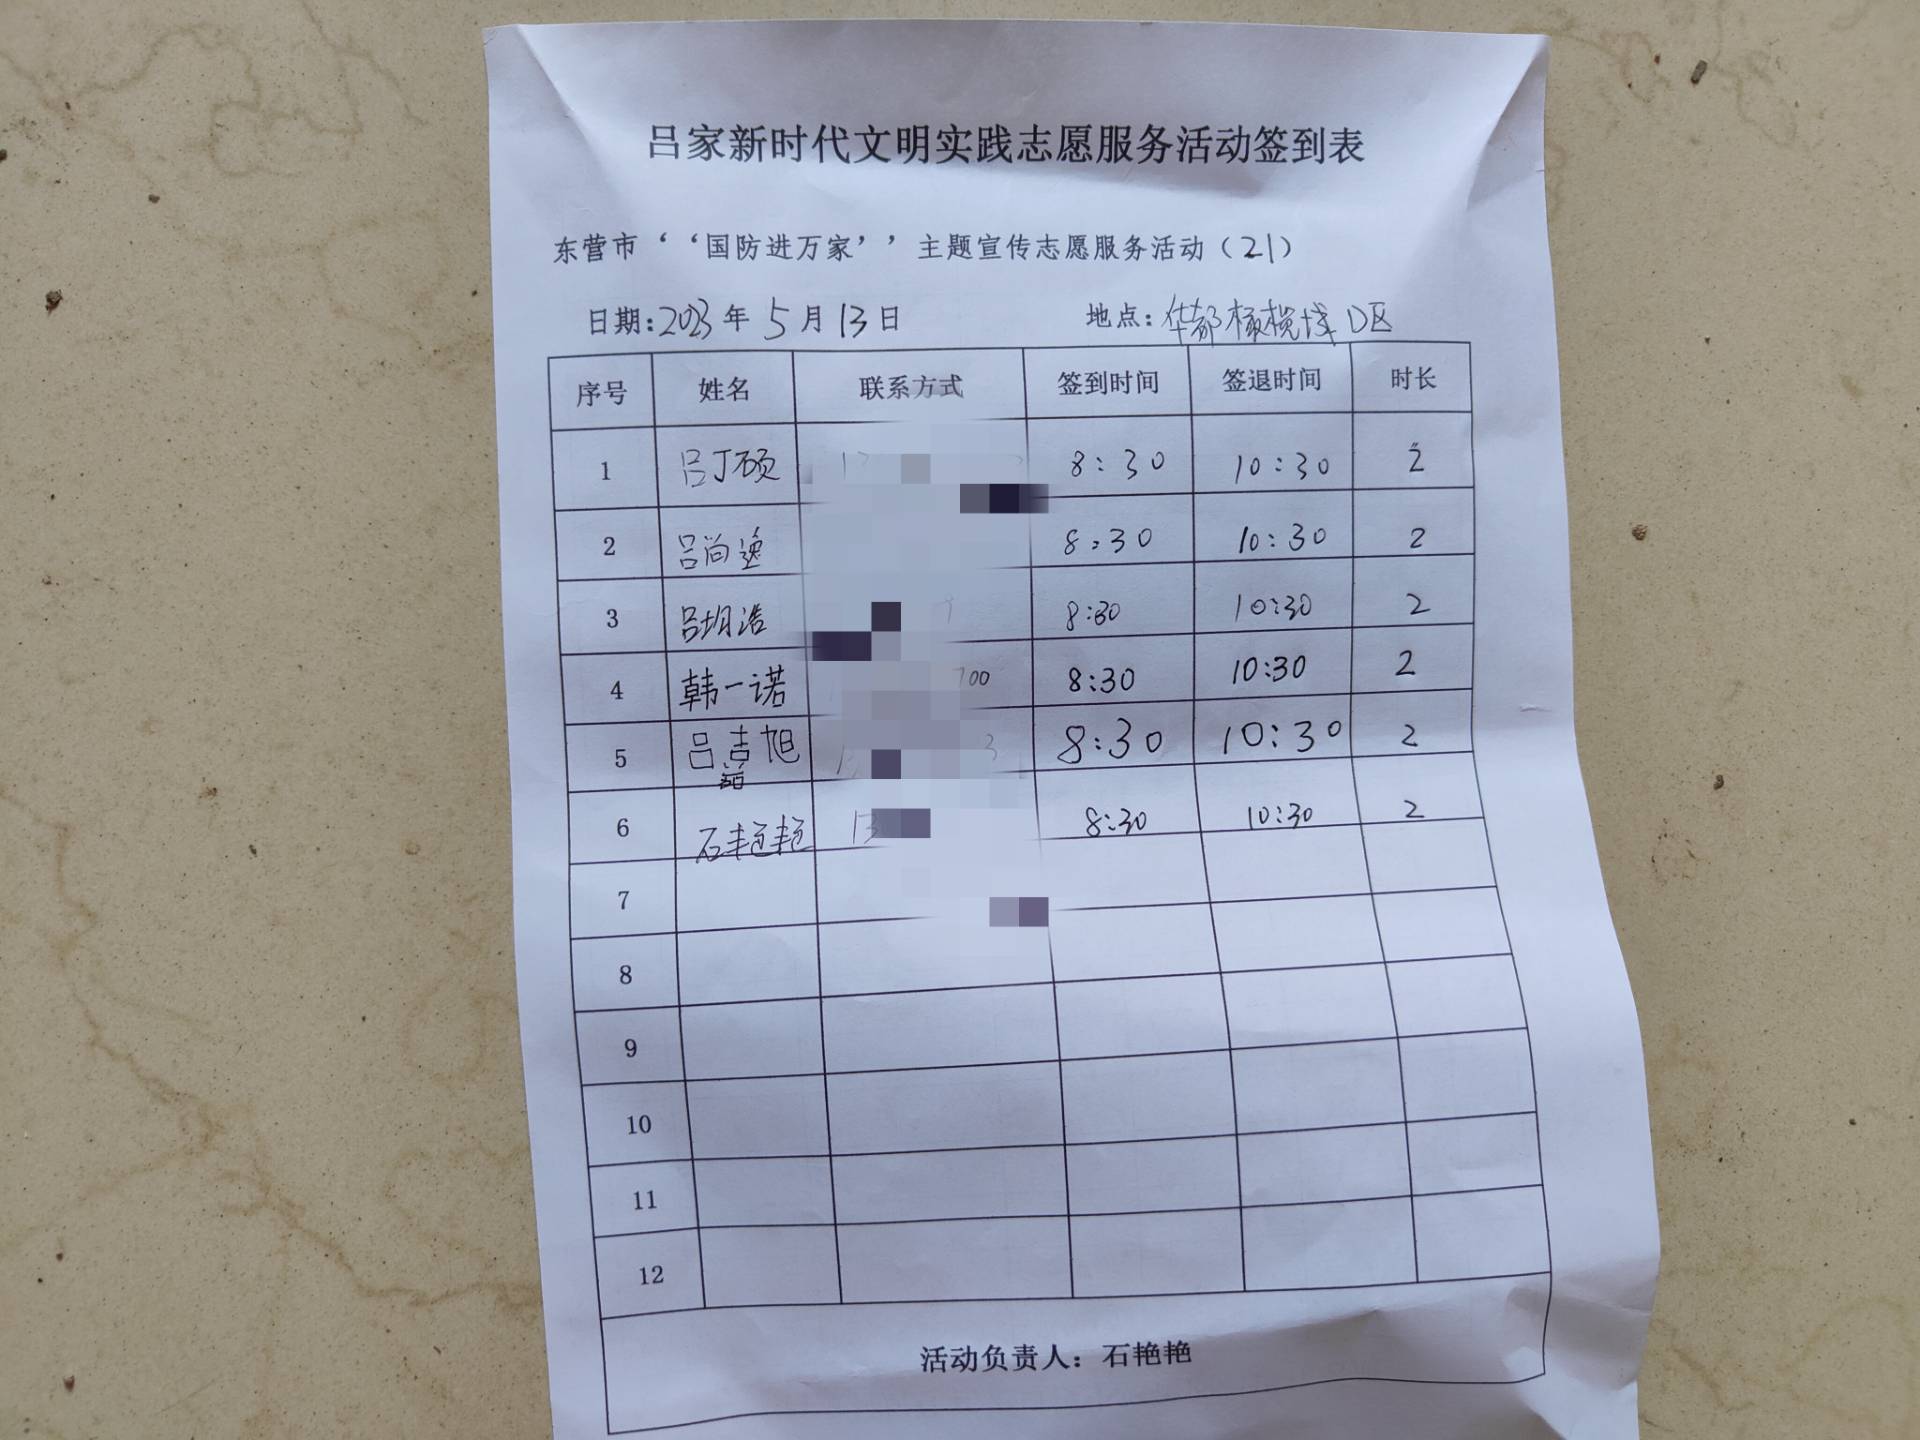 吕家新时代文明实践志愿服务活动签到表
东营市‘‘国防进万家’’主题宣传志愿服务活动（21）
日期:2023年5月13日 地点:华都橄榄城D区
序号 姓名 联系方式 签到时间 签退时间 时长
1 吕丁硕 8:30 10:30 2
2 吕尚逸 8:30 10:30 2
3 吕明浩 8:30 10:30 2
4 韩一诺 700 8:30 10:30 2
5 吕喆旭 3 8:30 10:30 2
6 石艳艳 13 8:30 10:30 2
7
8
9
10
11
12
活动负责人：石艳艳